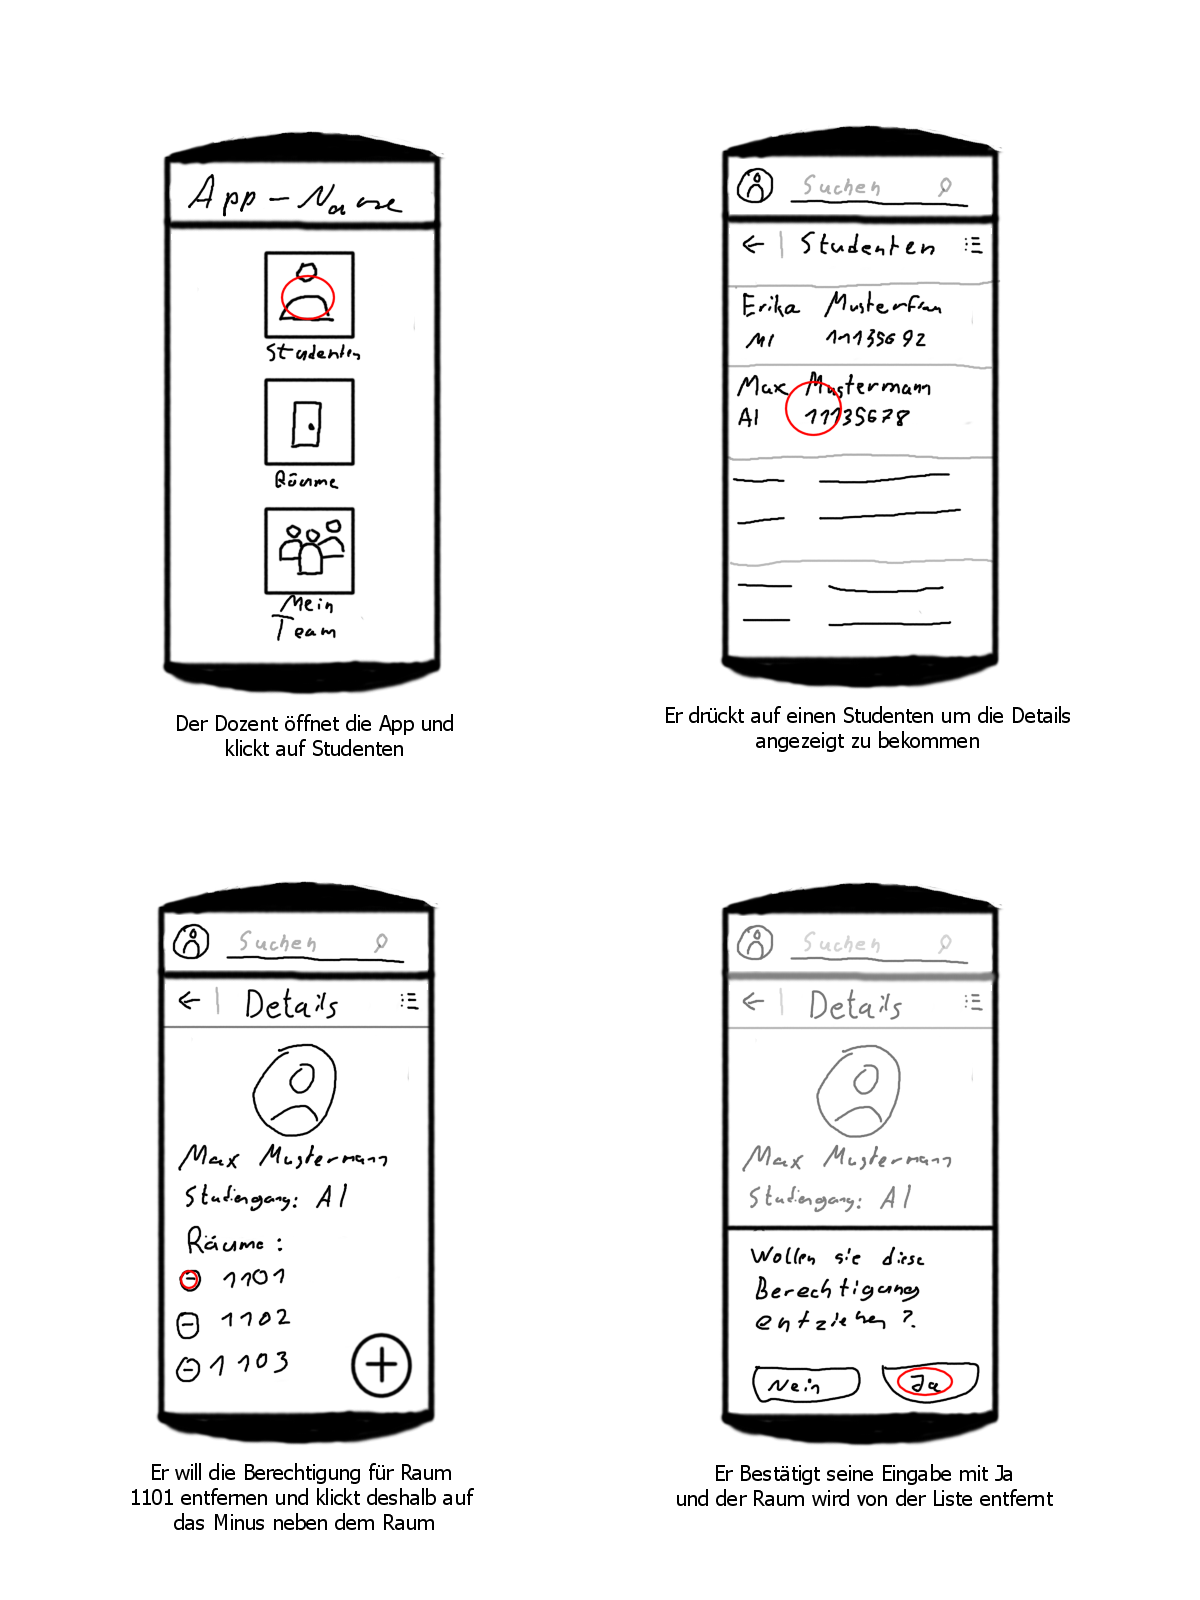 App-Name
Studenten
Räume
Mein
Team
Der Dozent öffnet die App und
klickt auf Studenten
Suchen
Studenten
Erika Musterfrau
MI 11135692
Max Mustermann
AI 11135678
Er drückt auf einen Studenten um die Details
angezeigt zu bekommen
Suchen
Details
Max Mustermann
Studiengang: AI
Räume:
1101
1102
1103
Er will die Berechtigung für Raum
1101 entfernen und klickt deshalb auf
das Minus neben dem Raum
Suchen
Details
Max Mustermann
Studiengang: AI
Wollen sie diese
Berechtigung
entziehen?
Nein Ja
Er Bestätigt seine Eingabe mit Ja
und der Raum wird von der Liste entfernt